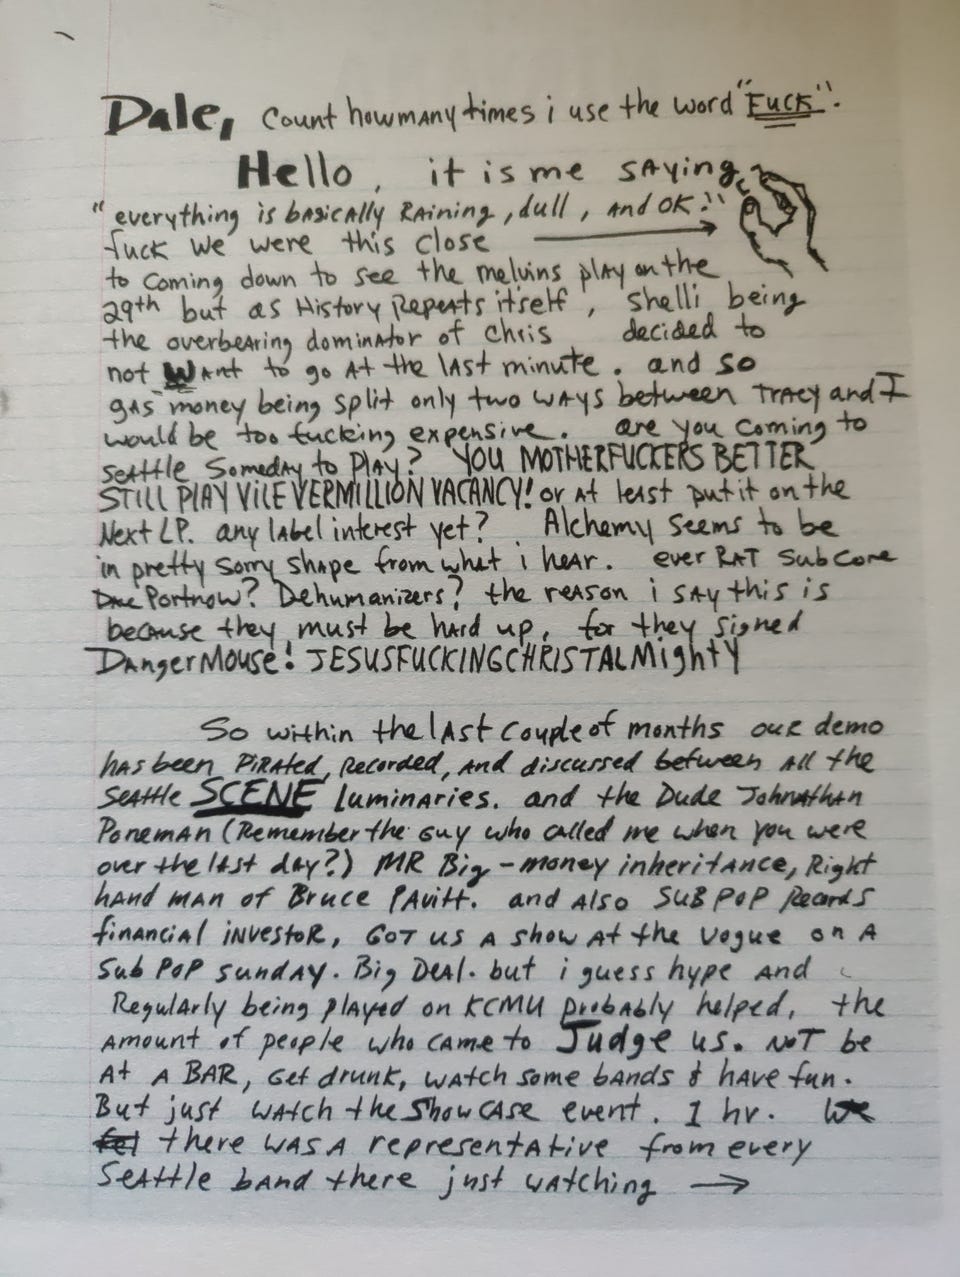 Dale, Count how many times i use the word "Fuck".
Hello, it is me saying,
"everything is basically Raining, dull, and OK."
fuck we were this close
to coming down to see the melvins play on the
29th but as History Repeats itself, shelli being
the overbearing dominator of chris decided to
not want to go at the last minute. and so
gas money being split only two ways between Tracy and I
would be too fucking expensive. are you coming to
seattle someday to play? YOU MOTHERFUCKERS BETTER
STILL PLAY VILE VERMILLION VACANCY! or at least put it on the
Next LP. any label interest yet? Alchemy seems to be
in pretty sorry shape from what i hear. ever RAT Subcore
Portnow? Dehumanizers? the reason i say this is
because they must be hard up, for they signed
DangerMouse! JESUSFUCKINGCHRISTALMighty
So within the last couple of months our demo
has been Pirated, Recorded, and discussed between all the
Seattle SCENE luminaries. and the Dude Johnathan
Poneman (Remember the guy who called me when you were
over the last day?) MR Big-money inheritance, Right
hand man of Bruce Pavitt. and also SUB POP Records
financial investor, GOT us a show at the Vogue on a
Sub Pop Sunday. Big Deal. but i guess hype and
Regularly being played on KCMU probably helped, the
amount of people who came to Judge us. NOT be
At a BAR, Get drunk, watch some bands & have fun.
But just watch the Showcase event. 1 hr. We
there was a representative from every
Seattle band there just watching →